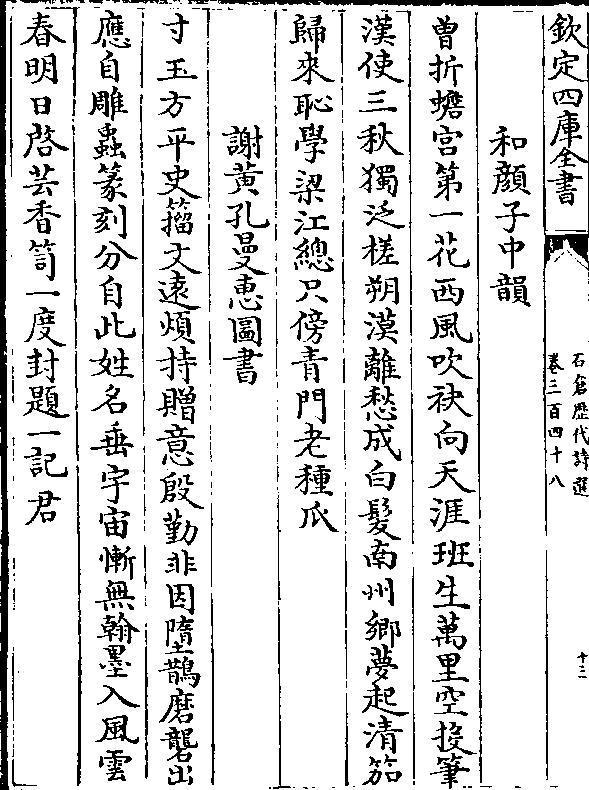 欽定四庫全書
石倉歷代詩選
卷三百四十八
十二
和顔子中韻
曽折蟾宫第一花西風吹袂向天涯班生萬里空投筆
漢使三秋獨泛槎朔漠離愁成白髪南州鄉夢起清笳
歸來恥學梁江總只傍青門老種瓜
謝黄孔曼惠圖書
寸玉方平史籕文逺煩持贈意殷勤非因墮鵲磨礱出
應自雕蟲篆刻分自此姓名垂宇宙慚無翰墨入風雲
春明日啓芸香笥一度封題一記君